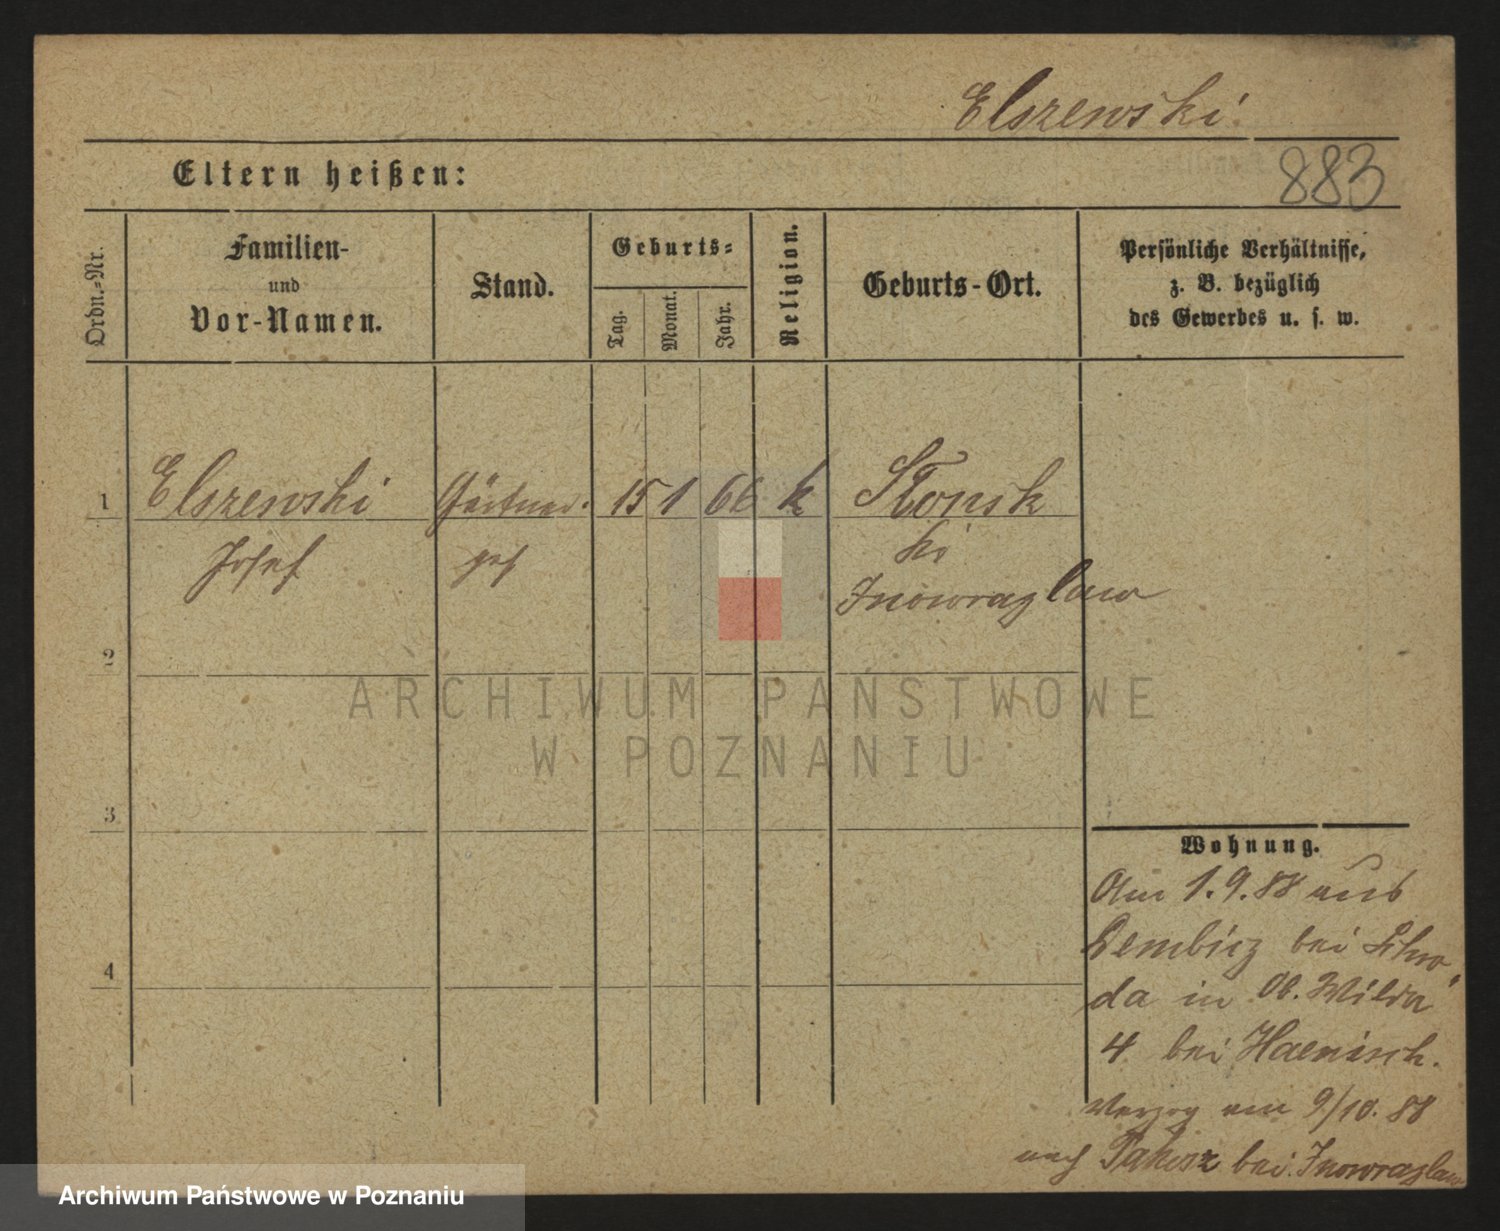 Elszewski
Eltern heißen:
883
Ordn.-Nr.
Familien-
und
Vor-Namen.
Stand.
Geburts-
Tag.
Monat.
Jahr.
Religion.
Geburts-Ort.
Persönliche Verhältnisse,
z. B. bezüglich
des Gewerbes u. s. w.
1 Elszewski Gärtner 15 1 66 k Słonsk
Josef geh Kr
Inowrazlaw
2
ARCHIWUM PAŃSTWOWE
W POZNANIU
3
Wohnung.
Am 1.9.88 aus
Dembicz bei Schro-
4
da in Ob. Wilda
4 bei Haenisch.
Verzog am 9/10. 88
nach Pakosz bei Inowrazlaw
Archiwum Państwowe w Poznaniu